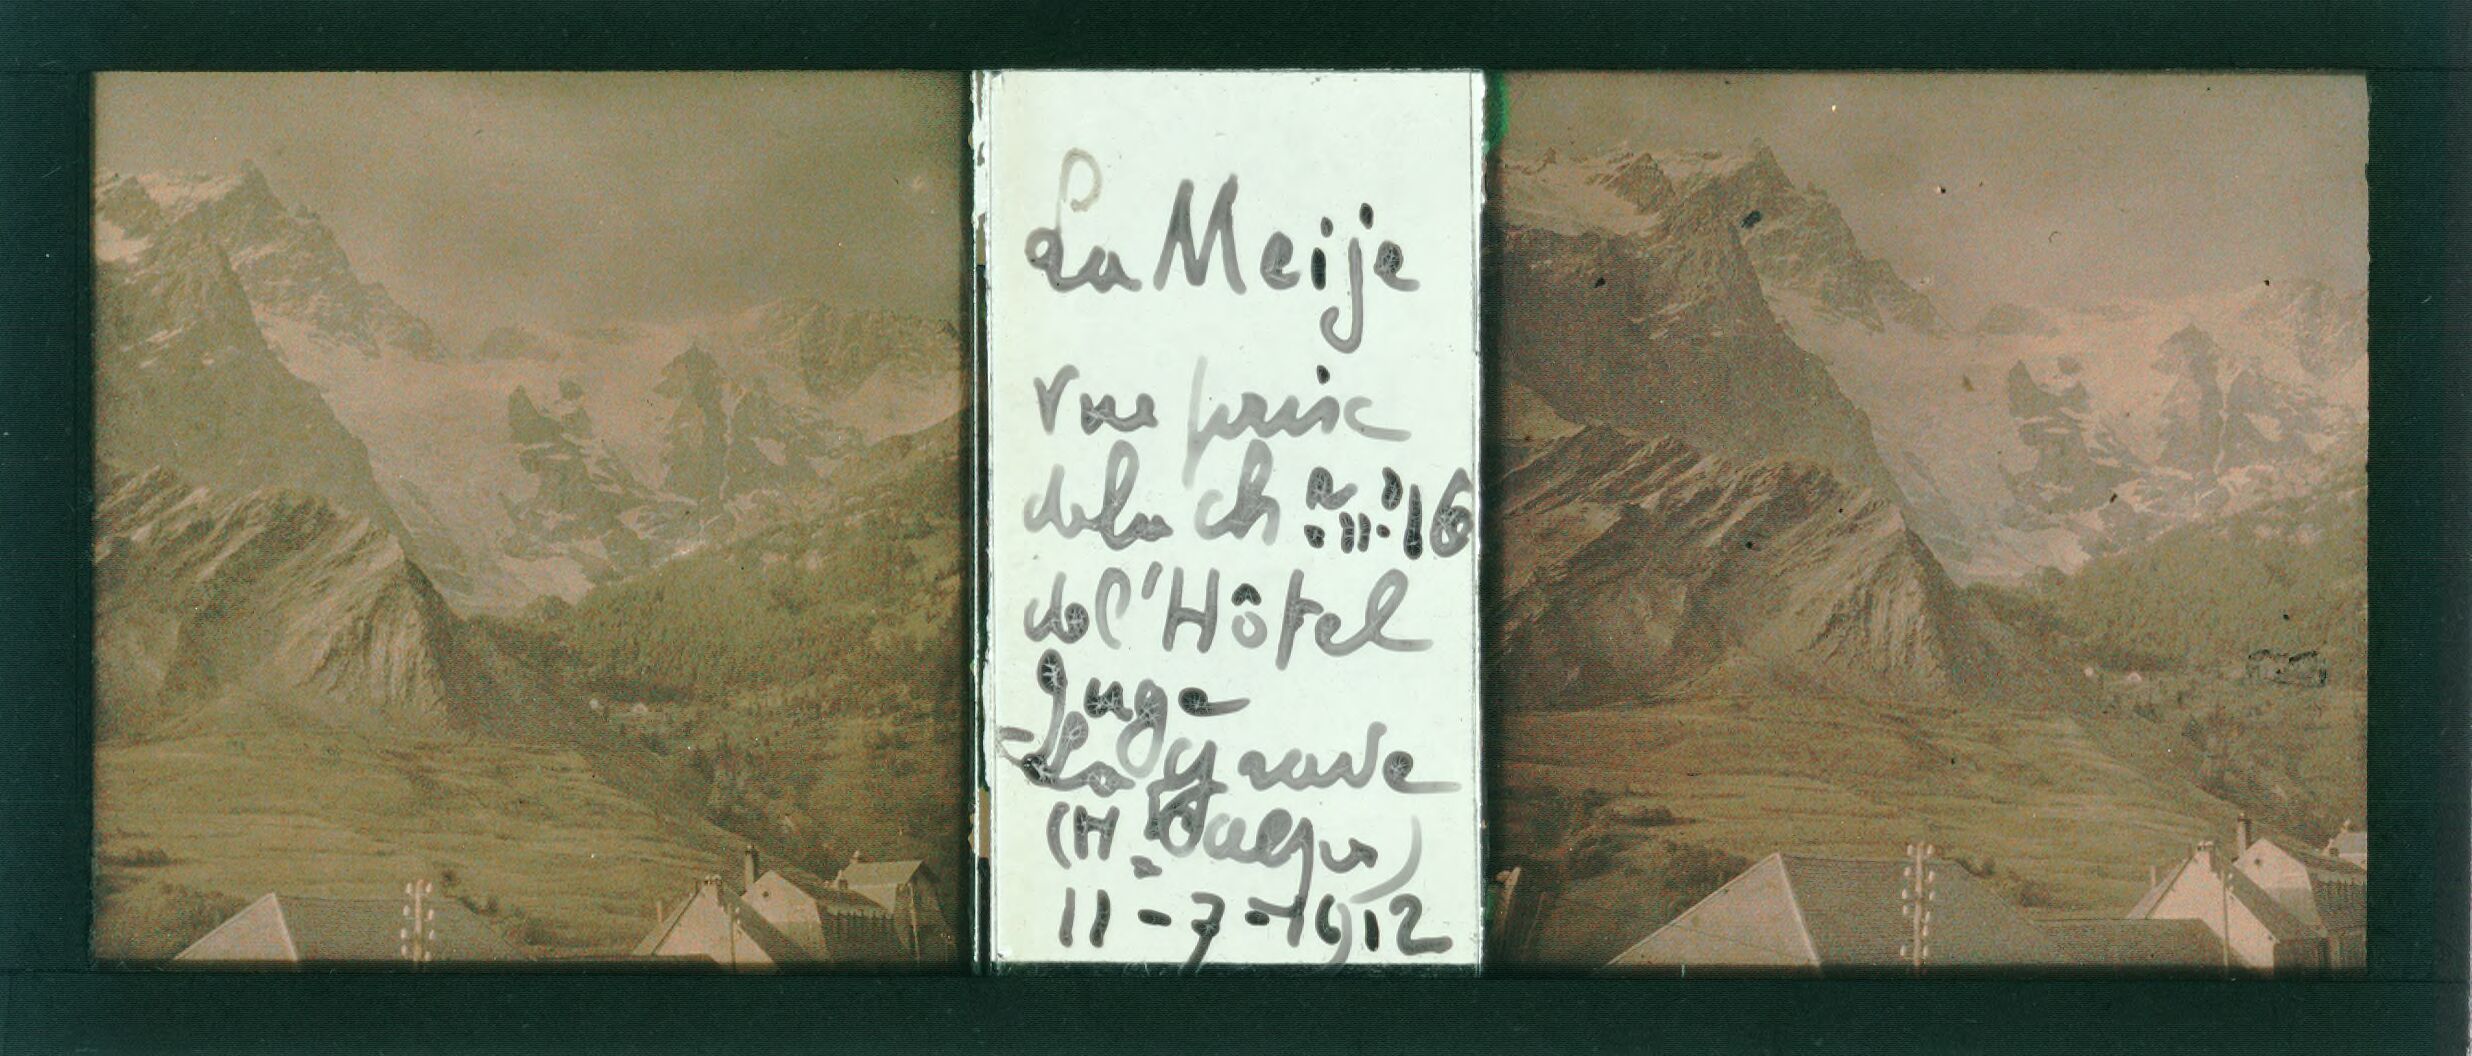 La Meije
vue prise
de la ch re n° 16
de l'Hôtel
Juge
La Grave
(Htes Alpes)
11-7-1912